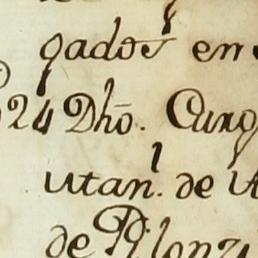 gados en
24 Dho. Cung
utan. de
de Pilonzi